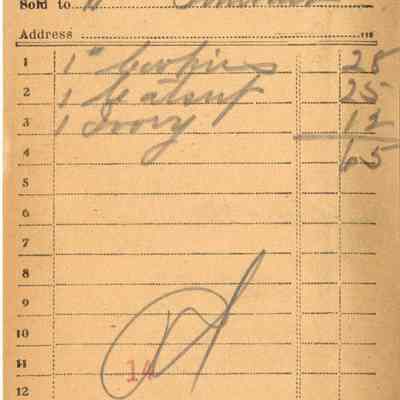 Sold to
Address
1 1# Cookies 25
2 1 Catsup 25
3 1 Ivory 12
4 65
5
6
7
8
9
10
11
12
14